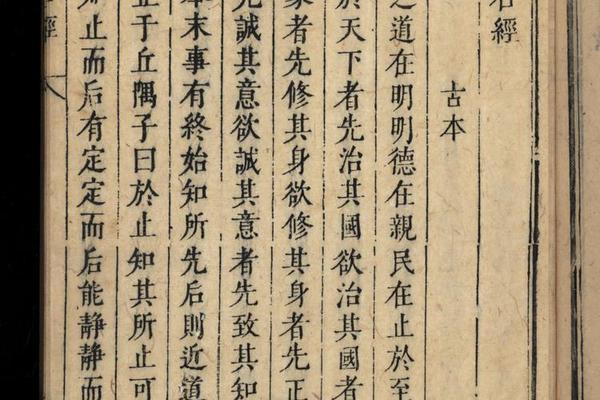 石經
古本
之道在明明德在親民在止於至
於天下者先治其國欲治其國者
家者先修其身欲修其身者先正
先誠其意欲誠其意者先致其知
本末事有終始知所先后則近道
止于丘隅子曰於止知其所止可
知止而后有定定而后能静静而
經